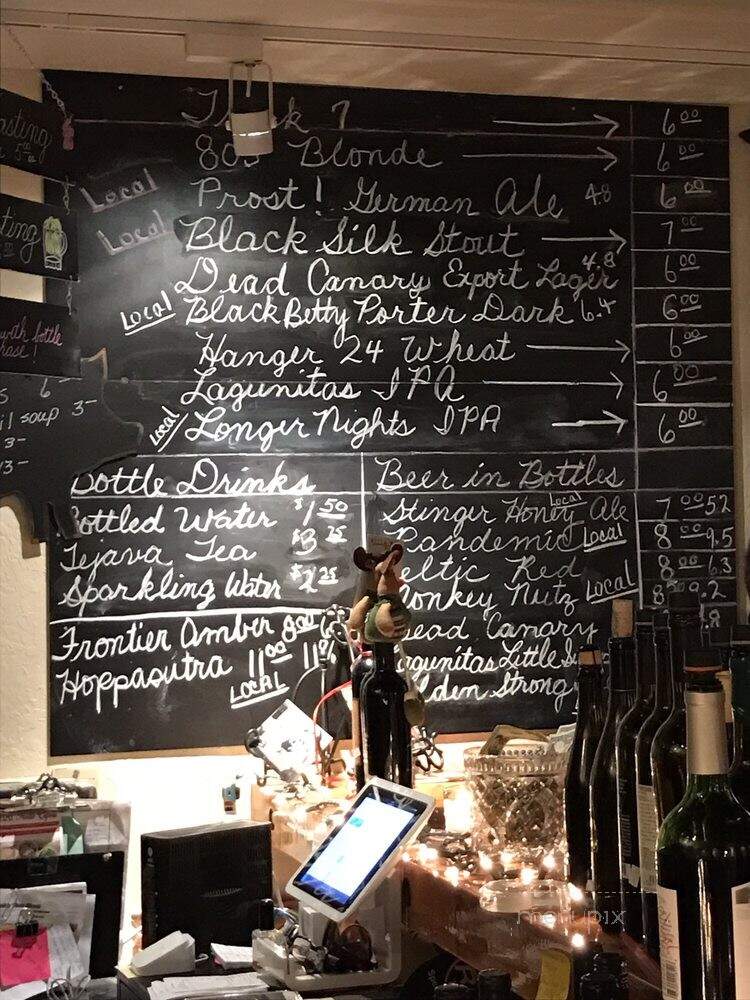 7 → 6 00
805 Blonde → 6 00
Local Prost! German Ale 4.8 6 00
Local Black Silk Stout → 7 00
Dead Canary Export Lager 4.8 6 00
Local Black Betty Porter Dark 6.4 6 00
Hanger 24 Wheat → 6 00
Lagunitas IPA → 6 00
Local Longer Nights IPA → 6 00
asting
5 00
ting
with bottle
hase!
S 6 -
il soup 3 -
3 -
13 -
Bottle Drinks
Bottled Water $1 50
Tejava Tea $3 25
Sparkling Water $2 25
Frontier Amber 8 00
Hoppasutra 11 00 11%
Local
Beer in Bottles
Stinger Honey Ale Local 7 00 5.2
Pandemic Local 8 00 9.5
eltic Red 8 00 6.3
Monkey Nutz Local 8 00 9.2
Dead Canary
Lagunitas Little
lden Strong
menupix